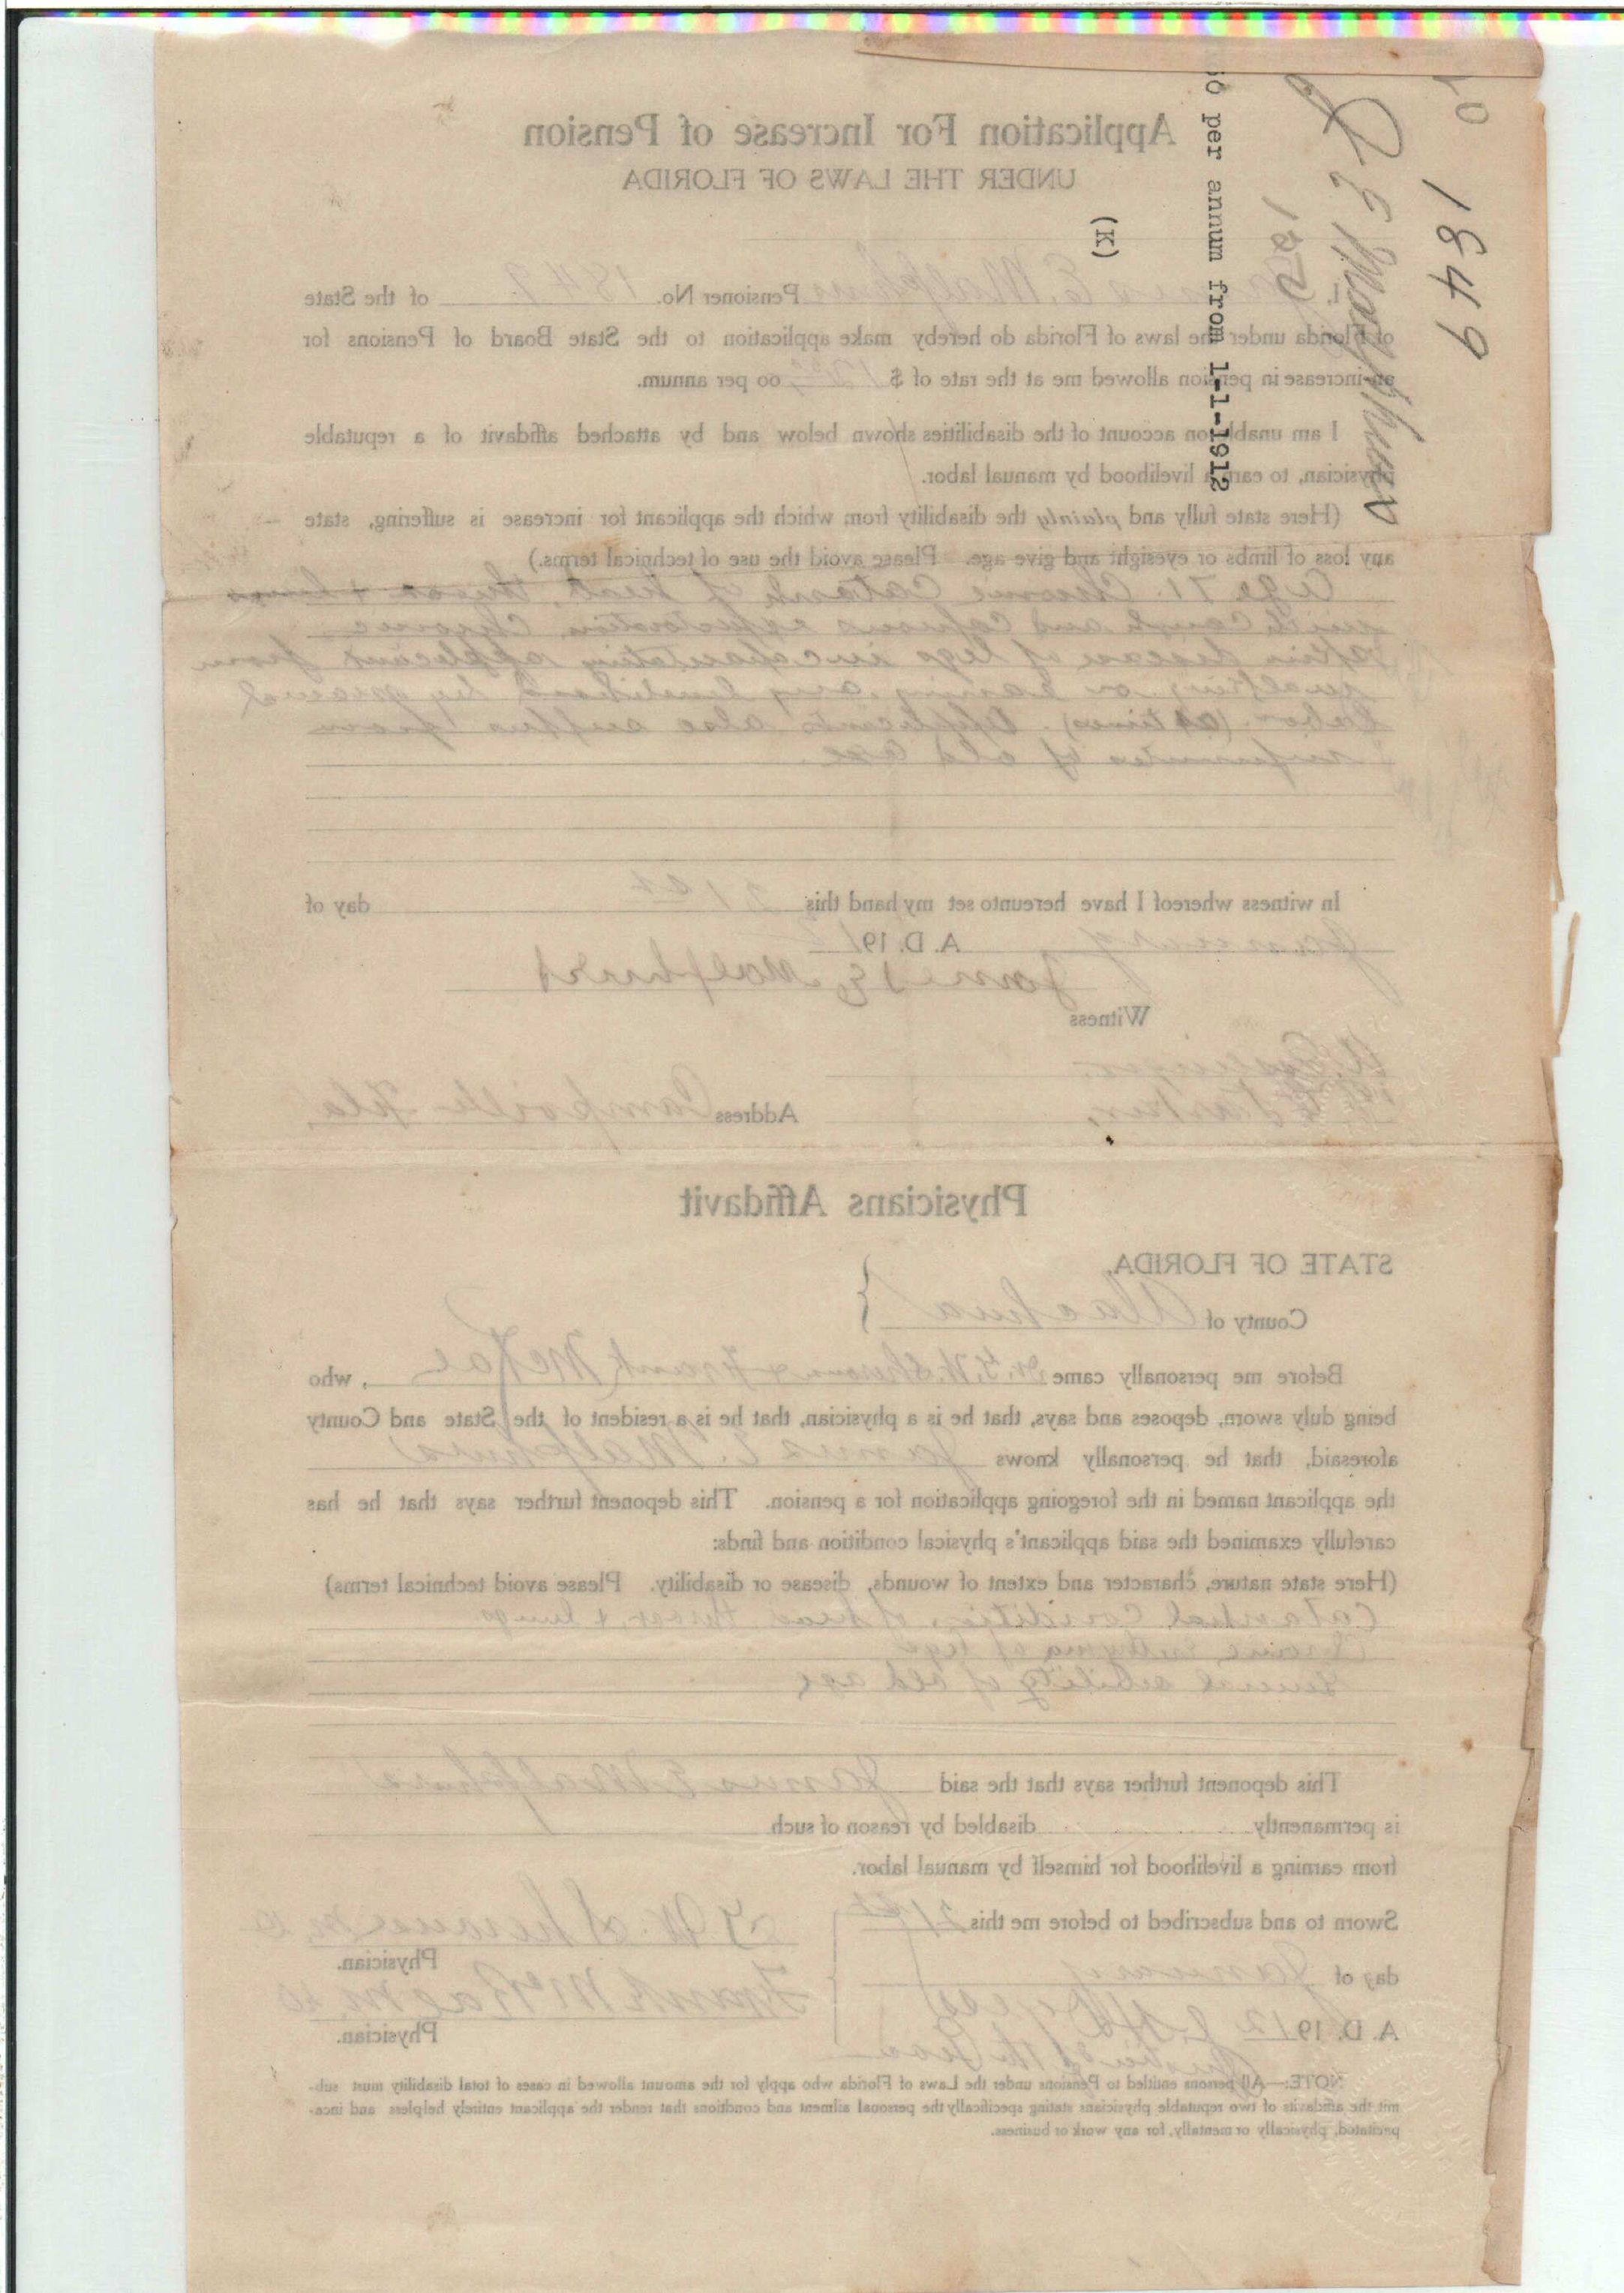 1849
J E Malphurs
150 per annum from 1-1-1912
(K)
Application For Increase of Pension
UNDER THE LAWS OF FLORIDA
James E. Malphurs Pensioner No. 1849 of the State
of Florida under the laws of Florida do hereby make application to the State Board of Pensions for
an increase in pension allowed me at the rate of $ 120 00 per annum.
I am unable on account of the disabilities shown below and by attached affidavit of a reputable
physician, to earn a livelihood by manual labor.
(Here state fully and plainly the disability from which the applicant for increase is suffering, state
any loss of limbs or eyesight and give age. Please avoid the use of technical terms.)
Age 71. Chronic Catarrh of head, throat & lungs
with cough and copious expectoration, Chronic
skin disease of legs incapacitating applicant from
walking or earning any livelihood by manual
labor (at times). Applicant also suffers from
infirmities of old age.
In witness whereof I have hereunto set my hand this 21st day of
January A. D. 1912
James E Malphurs
Witness
Address Campville Fla.
Physicians Affidavit
STATE OF FLORIDA,
County of Alachua }
Before me personally came Dr. J. W. & Frank McRae, who
being duly sworn, deposes and says, that he is a physician, that he is a resident of the State and County
aforesaid, that he personally knows James E. Malphurs
the applicant named in the foregoing application for a pension. This deponent further says that he has
carefully examined the said applicant's physical condition and finds:
(Here state nature, character and extent of wounds, disease or disability. Please avoid technical terms)
Catarrhal condition of head throat & lungs.
Chronic of legs
General debility of old age
This deponent further says that the said James E Malphurs
is permanently disabled by reason of such
from earning a livelihood for himself by manual labor.
Sworn to and subscribed to before me this 21st
day of January
A. D. 1912
Justice of the Peace
M.D.
Physician.
Frank McRae M.D.
Physician.
NOTE:—All persons entitled to Pensions under the Laws of Florida who apply for the amount allowed in cases of total disability must sub-
mit the affidavits of two reputable physicians stating specifically the personal ailment and conditions that render the applicant entirely helpless and inca-
pacitated, physically or mentally, for any work or business.